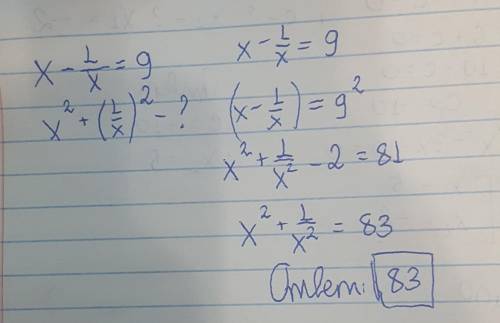 x - 1/x = 9
x² + (1/x)² - ?
x - 1/x = 9
(x - 1/x) = 9²
x² + 1/x² - 2 = 81
x² + 1/x² = 83
Ответ: 83